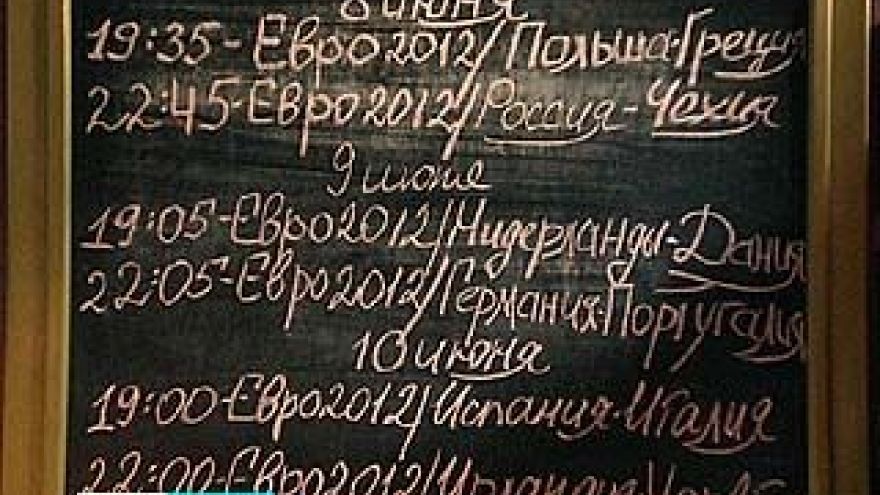 8 июня
19:35-Евро2012/Польша-Греция
22:45-Евро2012/Россия-Чехия
9 июня
19:05-Евро2012/Нидерланды-Дания
22:05-Евро2012/Германия-Португалия
10 июня
19:00-Евро2012/Испания-Италия
22:00-Евро2012/Ирландия